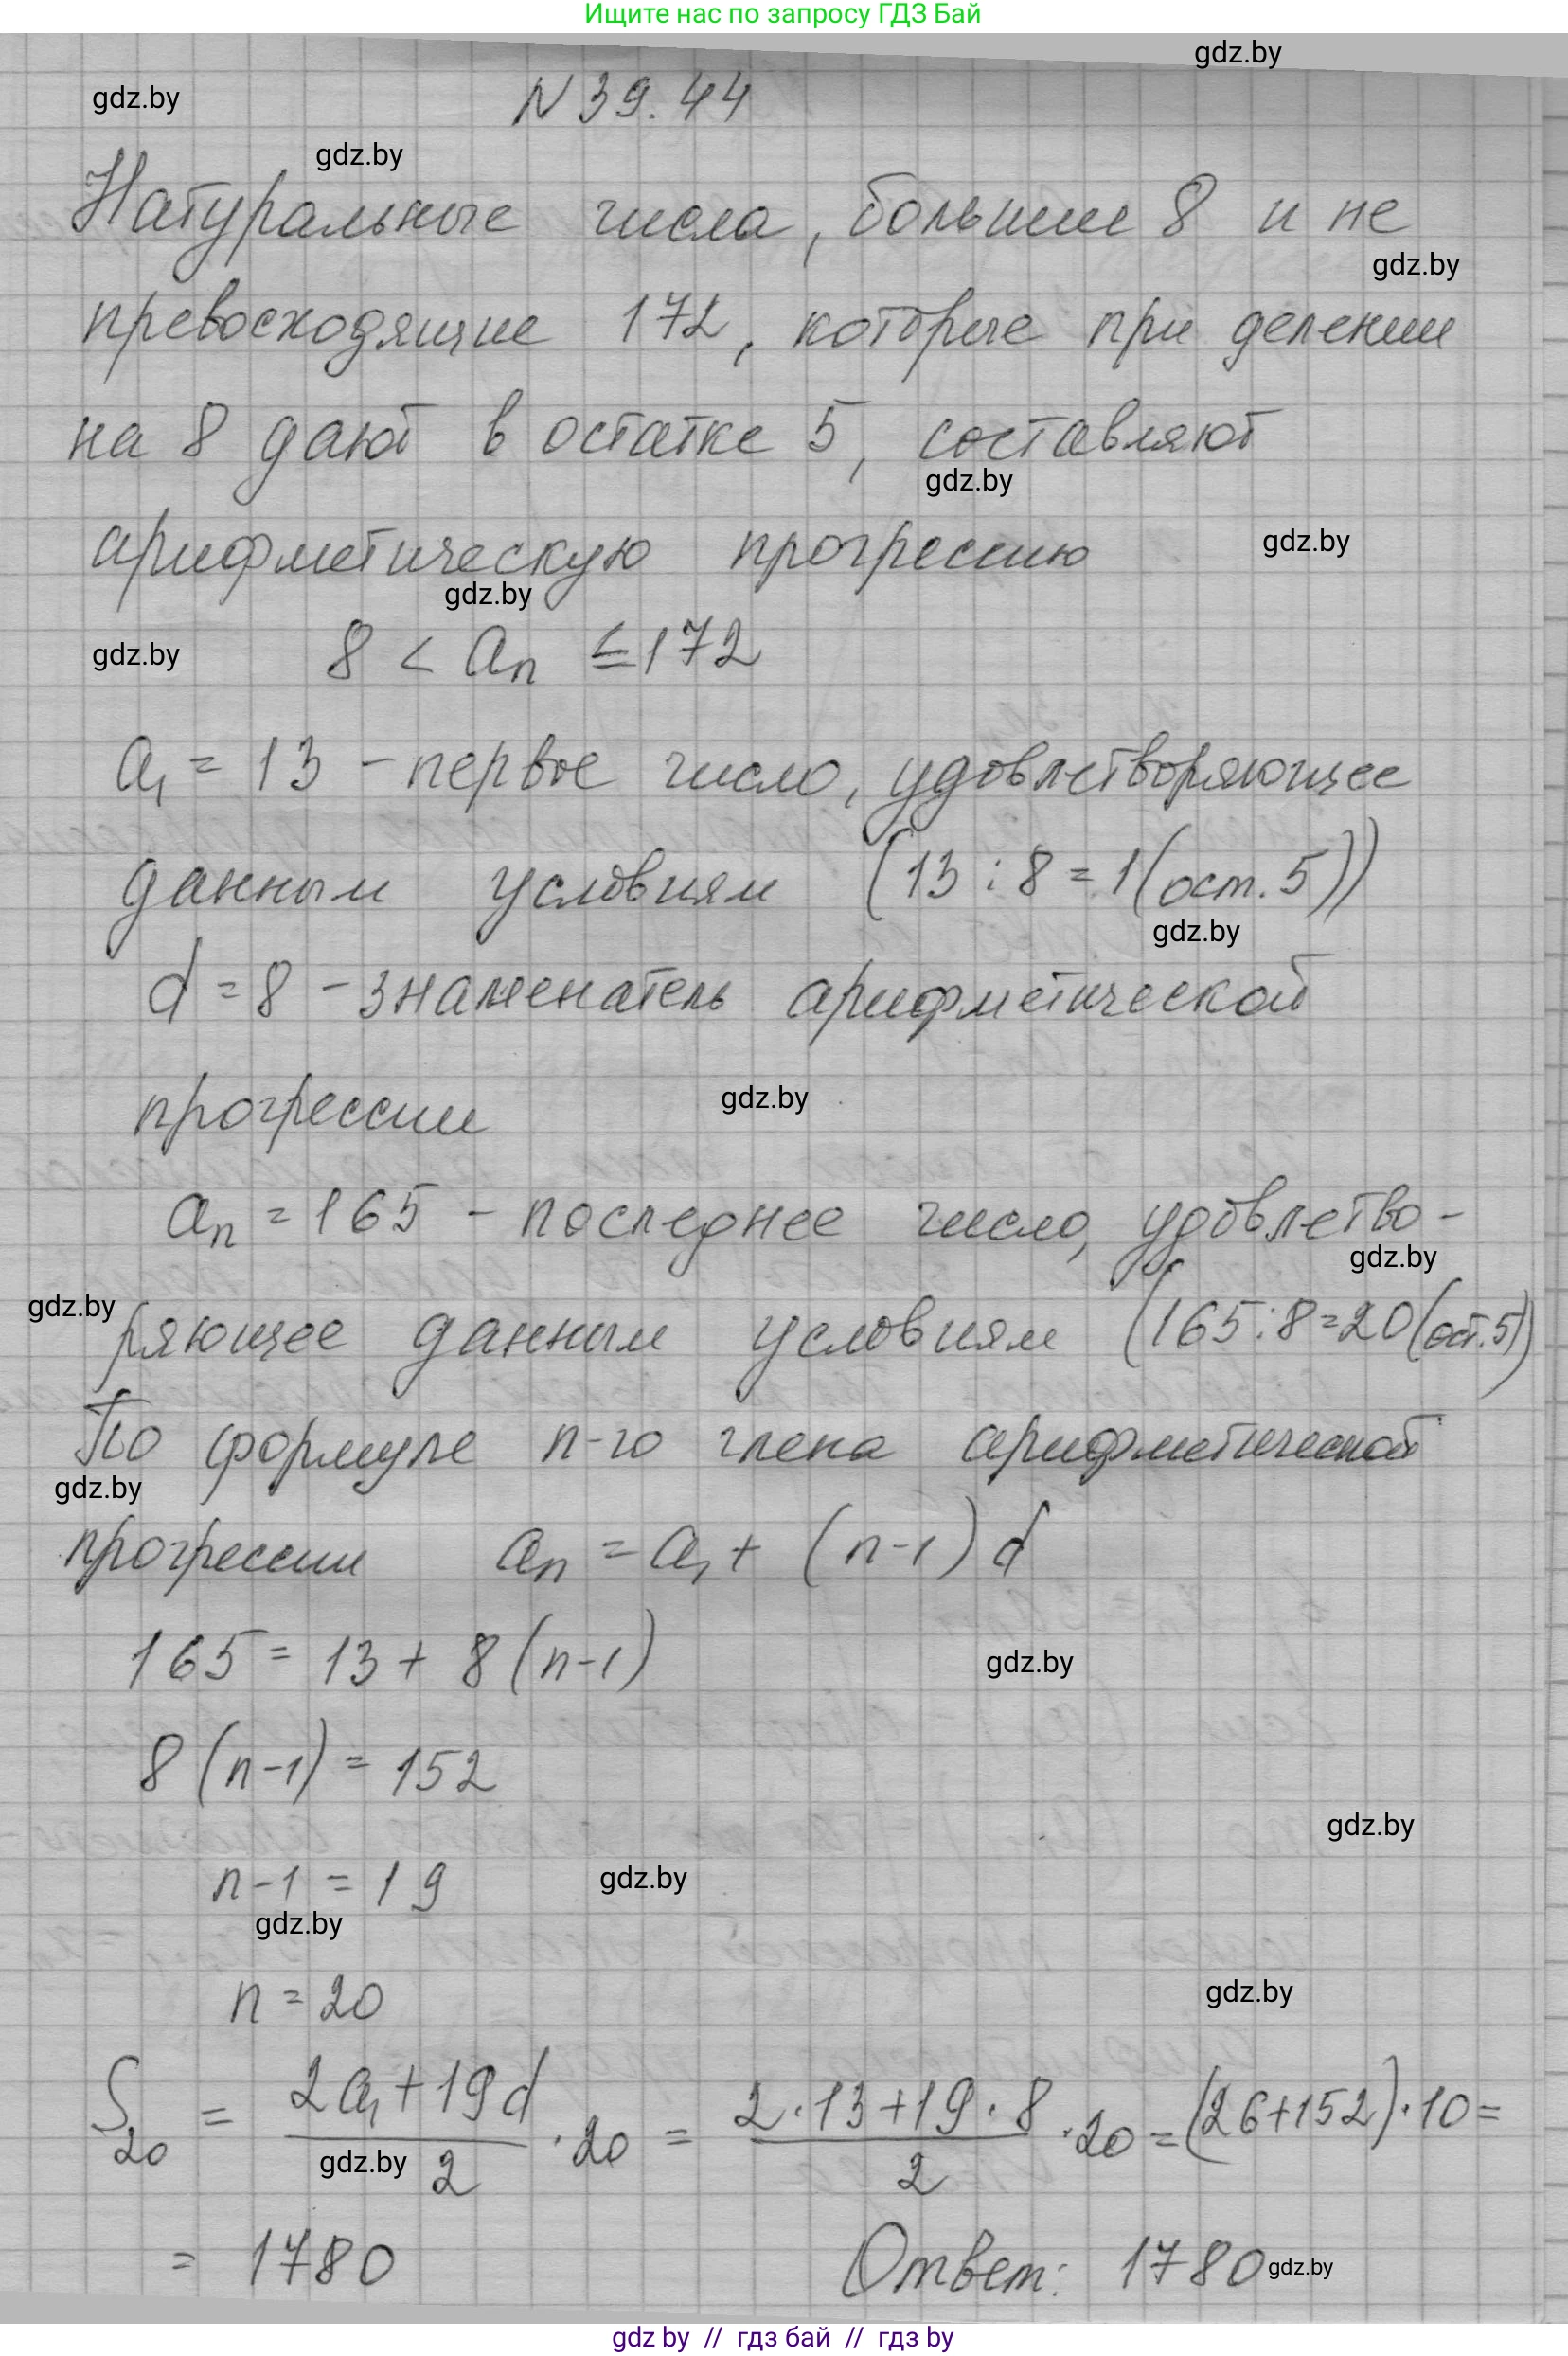 Ищите нас по запросу ГДЗ Бай
gdz.by
gdz.by
N 39.44
gdz.by
Натуральные числа, большие 8 и не
gdz.by
превосходящие 172, которые при делении
на 8 дают в остатке 5, составляют
gdz.by
арифметическую прогрессию
gdz.by
gdz.by
gdz.by
8 < aₙ ≤ 172
a₁ = 13 – первое число, удовлетворяющее
данным условиям (13 : 8 = 1(ост. 5))
gdz.by
d = 8 – знаменатель арифметической
прогрессии
gdz.by
aₙ = 165 – последнее число, удовлетво-
gdz.by
gdz.by
ряющее данным условиям (165:8=20(ост.5))
По формуле n-го члена арифметической
gdz.by
прогрессии aₙ = a₁ + (n-1) d
165 = 13 + 8(n-1)
gdz.by
8(n-1) = 152
gdz.by
n-1 = 19
gdz.by
gdz.by
n = 20
gdz.by
S₂₀ = (2a₁+19d)/2 · 20 = (2·13+19·8)/2 · 20 = (26+152)·10 =
gdz.by
= 1780 Ответ: 1780
gdz.by
gdz by // гдз бай // гдз by